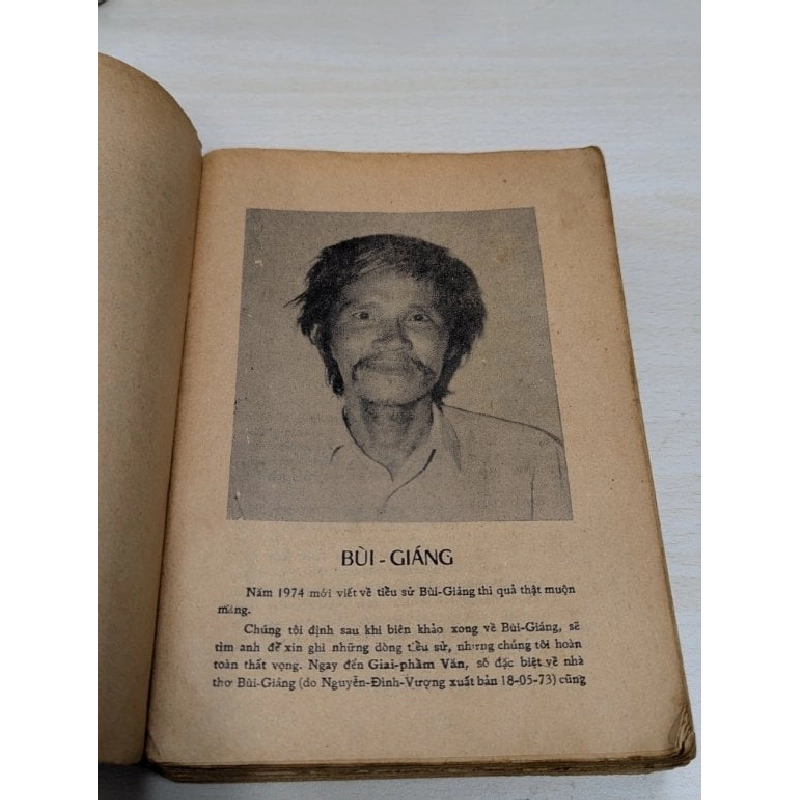 BÙI - GIÁNG
Năm 1974 mới viết về tiểu sử Bùi-Giáng thì quả thật muộn
màng.
Chúng tôi định sau khi biên khảo xong về Bùi-Giáng, sẽ
tìm anh để xin ghi những dòng tiểu sử, nhưng chúng tôi hoàn
toàn thất vọng. Ngay đến Giai-phẩm Văn, số đặc biệt về nhà
thơ Bùi-Giáng (do Nguyễn-Đình-Vượng xuất bản 18-05-73) cũng